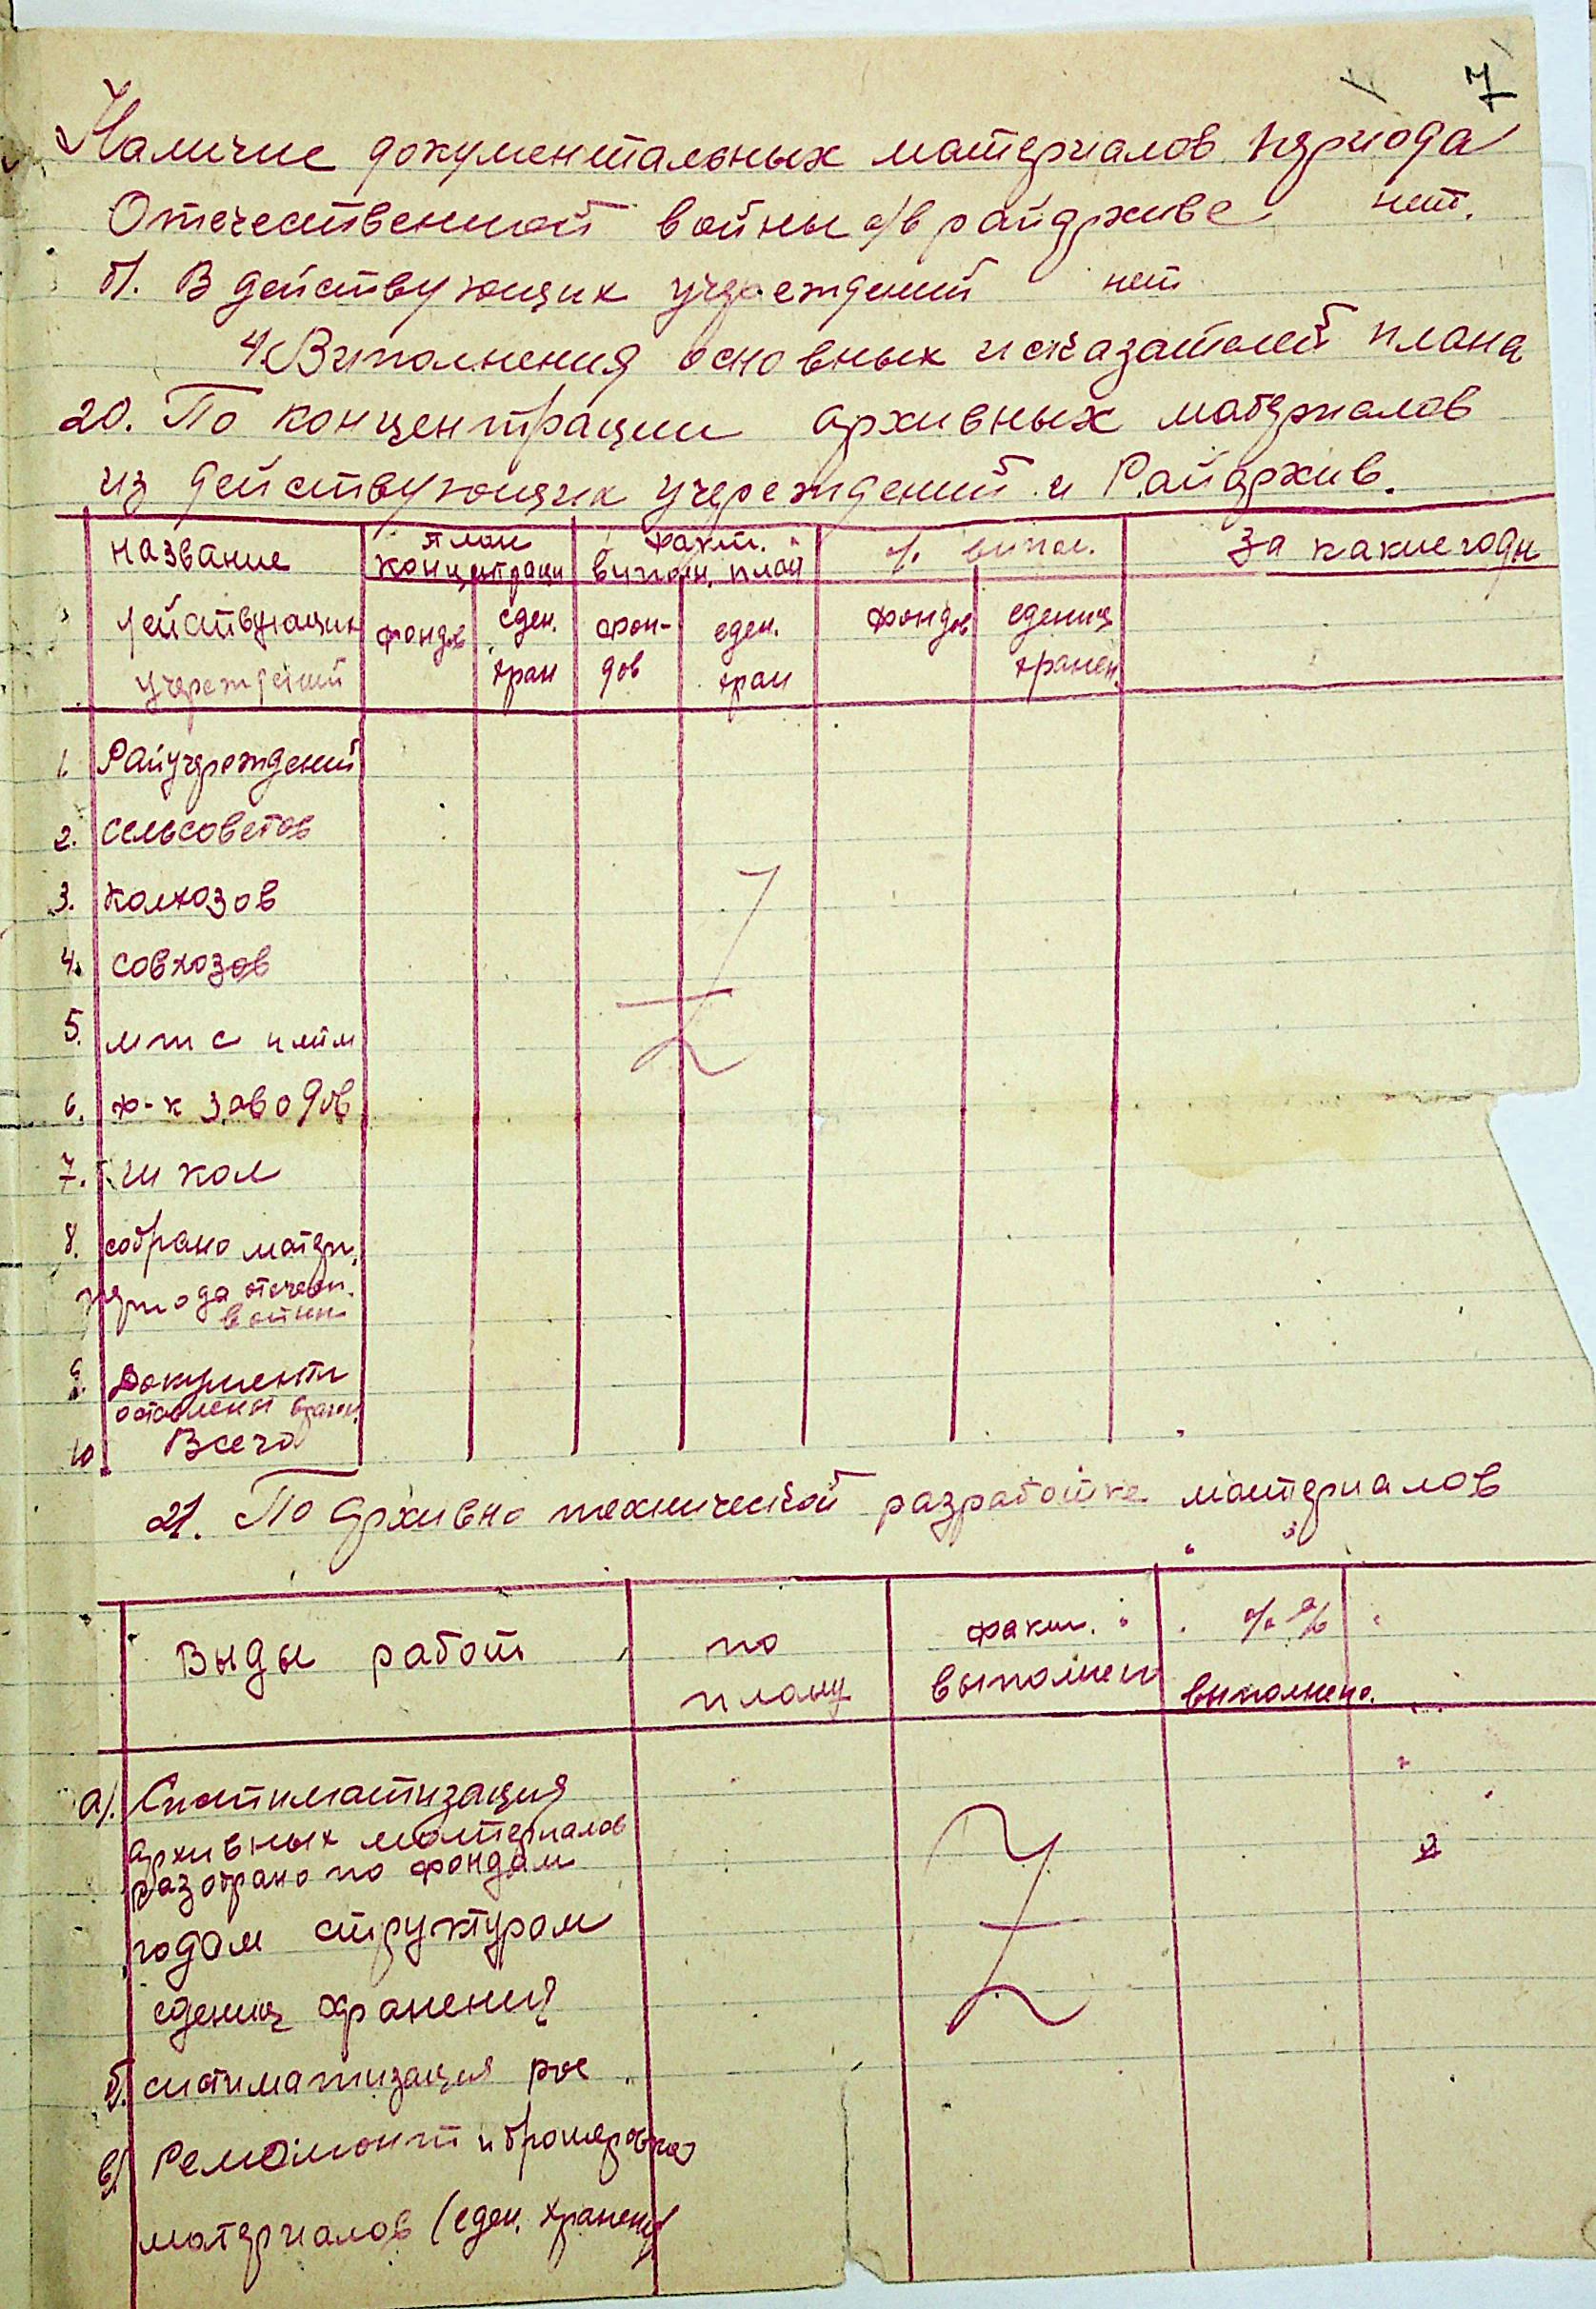 7
Наличие документальных материалов периода
Отечественной войны а/ в райархиве нет.
б/. В действующих учреждений нет
4. Выполнения основных показателей плана
20. По концентрации архивных материалов
из действующих учреждений и Райархив.
название
план
факт.
% выпол.
за какие годы
концентраци
выполн. план
действующих
фондов
еден.
фон-
еден.
фондов
едениц
учреждений
хран
дов
хран
хранен.
1. Райучреждений
2. сельсоветов
3. колхозов
4. совхозов
5. мтс и мтм
6. ф-к заводов
7. школ
8. собрано матери.
периода отечест.
войны
9. Документы
оставлены
10 Всего
21. По архивно технической разработке материалов
Выды работ
по
факт.
% %
плану
выполнен
выполнено.
а/. Систиматизация
архивных материалов
разобрано по фондам
годам структурам
едениц хранения
б/. систиматизация рос
в/ Ремомонт и брошеровка
материалов (еден. хранени/